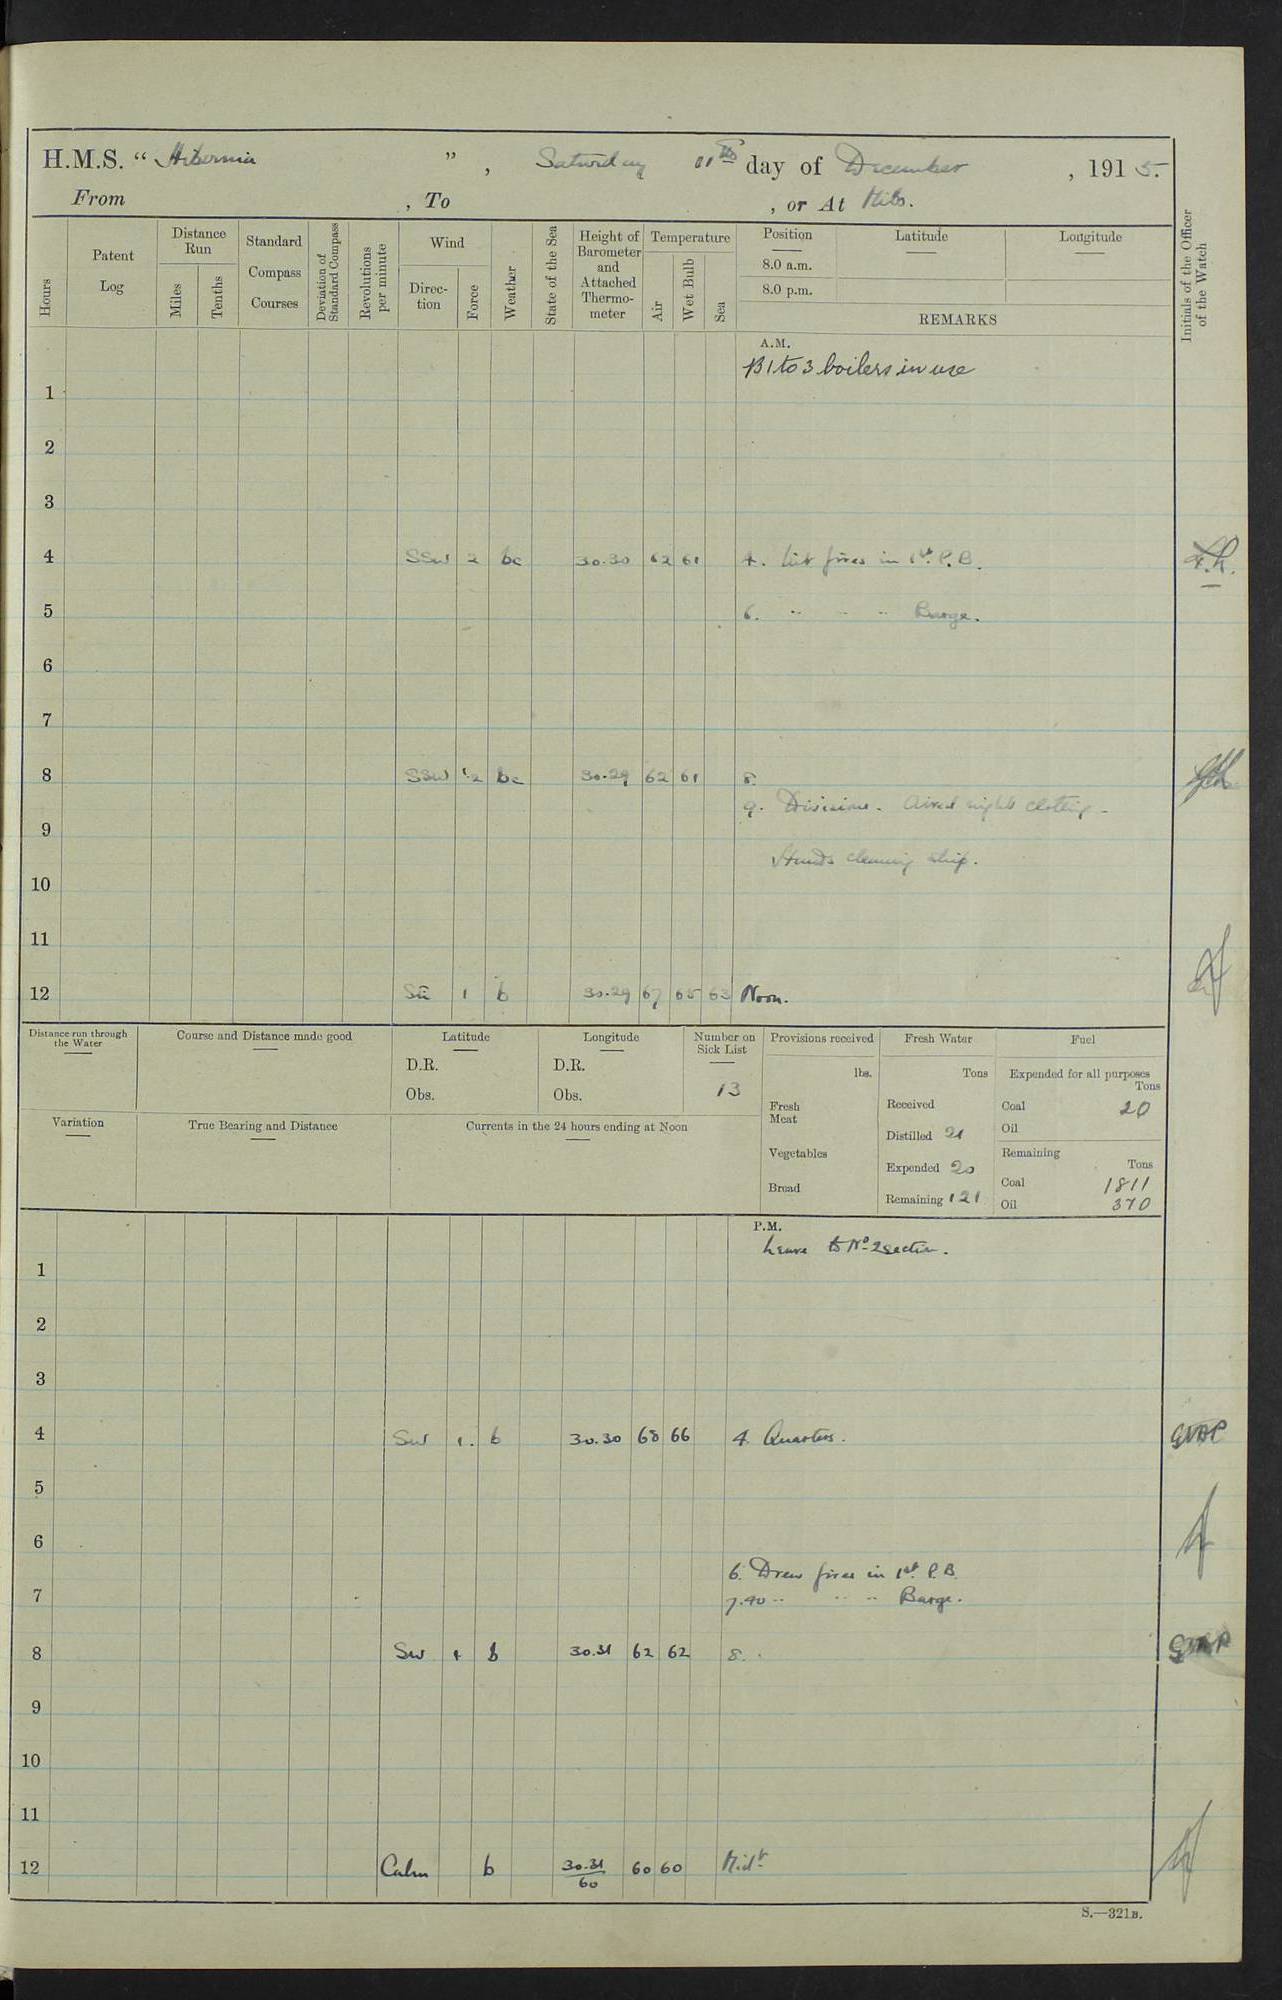 H.M.S. “ Hibernia ” , Saturday 11th day of December , 1915.
From , To , or At Kilo.
Hours
Patent Log
Distance Run
Miles
Tenths
Standard Compass Courses
Deviation of Standard Compass
Revolutions per minute
Wind
Direc-tion
Force
Weather
State of the Sea
Height of Barometer and Attached Thermo-meter
Temperature
Air
Wet Bulb
Sea
Position
8.0 a.m.
8.0 p.m.
Latitude
Longitude
REMARKS
Initials of the Officer of the Watch
A.M.
B 1 to 3 boilers in use
1
2
3
4 SSW 2 bc 30.30 62 61 4. Lit fires in 1st P.B.
5 6. " " " Barge.
6
7
8 SSW 1-2 bc 30.29 62 61 8.
9. Divisions. Aired night clothing.
9
Hands cleaning ship.
10
11
12 1 b 30.29 67 65 63 Noon.
Distance run through the Water
Course and Distance made good
Latitude
D.R.
Obs.
Longitude
D.R.
Obs.
Number on Sick List
13
Provisions received
lbs.
Fresh Meat
Vegetables
Bread
Fresh Water
Tons
Received
Distilled 21
Expended 20
Remaining 121
Fuel
Expended for all purposes
Tons
Coal 20
Oil
Remaining
Tons
Coal 1811
Oil 370
Variation
True Bearing and Distance
Currents in the 24 hours ending at Noon
P.M.
Leave to No 2 section.
1
2
3
4 SW 1. b 30.30 68 66 4. Quarters.
5
6
6. Drew fires in 1st P.B.
7 7.40 " " " Barge.
8 SW 1 b 30.31 62 62 8.
9
10
11
12 Calm b 30.31/60 60 60 Midt
S.—321B.